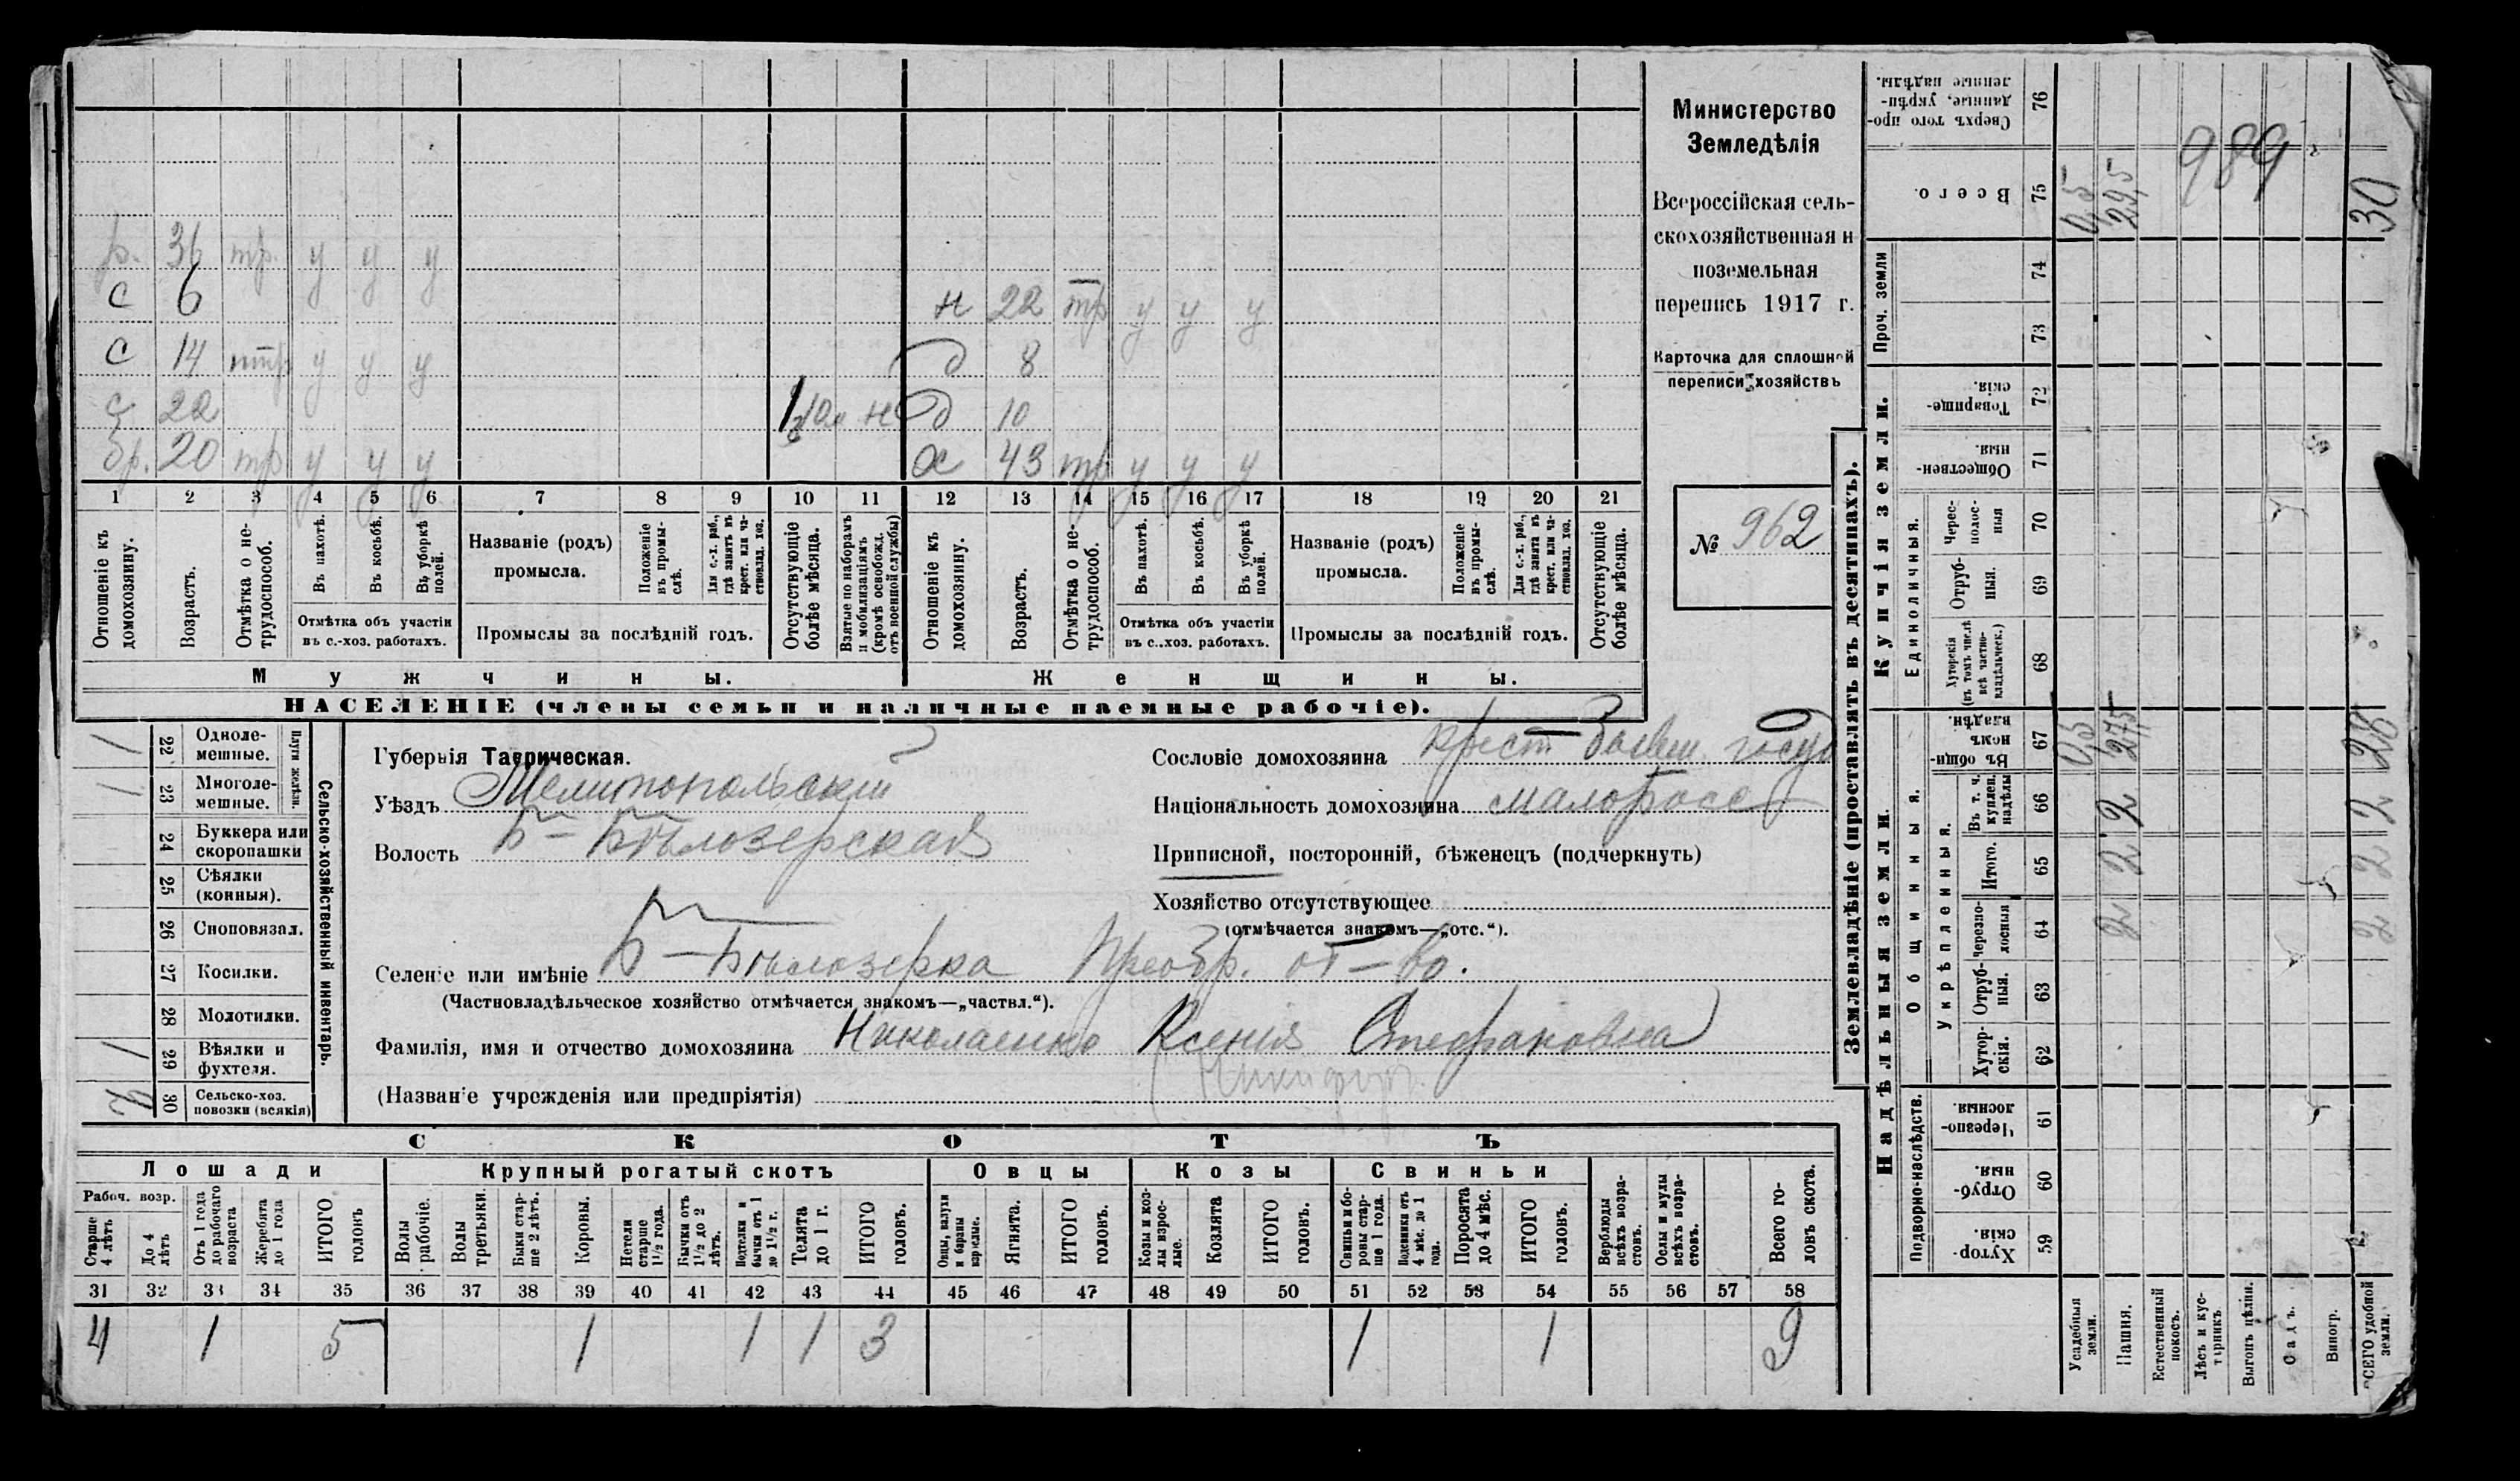 Министерство
Земледѣлія
Всероссійская сель-
скохозяйственная и
поземельная
перепись 1917 г.
Карточка для сплошной
переписи хозяйствъ
№ 962
р. 36 тр. у у у
с 6
н 22 тр у у у
с 14 птр у у у
д 8
с 22
н
д 10
бр. 20 тр у у у
х 43 тр у у у
1 2 3 4 5 6 7 8 9 10 11 12 13 14 15 16 17 18 19 20 21
Отношеніе къ домохозяину.
Возрастъ.
Отмѣтка о не-трудоспособ.
Въ пахотѣ.
Въ косьбѣ.
Въ уборкѣ полей.
Отмѣтка объ участіи
въ с.-хоз. работахъ.
Названіе (родъ)
промысла.
Положеніе въ промы-слѣ.
Для с.-х. раб., гдѣ занятъ въ крест. или ча-стновлад. хоз.
Промыслы за послѣдній годъ.
Отсутствующіе болѣе мѣсяца.
Взятые по наборамъ и мобилизаціямъ (кромѣ освобожд. отъ военной службы)
Отношеніе къ домохозяину.
Возрастъ.
Отмѣтка о не-трудоспособ.
Въ пахотѣ.
Въ косьбѣ.
Въ уборкѣ полей.
Отмѣтка объ участіи
въ с.-хоз. работахъ.
Названіе (родъ)
промысла.
Положеніе въ промы-слѣ.
Для с.-х. раб., гдѣ занята въ крест. или ча-стновлад. хоз.
Промыслы за послѣдній годъ.
Отсутствующіе болѣе мѣсяца.
Мужчины.
Женщины.
НАСЕЛЕНІЕ (члены семьи и наличные наемные рабочіе).
1 22 Одноле-мешные.
1 23 Многоле-мешные.
Плуги желѣзн.
24 Буккера или скоропашки
25 Сѣялки (конныя).
26 Сноповязал.
27 Косилки.
28 Молотилки.
1 29 Вѣялки и фухтеля.
30 Сельско-хоз. повозки (всякія)
Сельско-хозяйственный инвентарь.
Губернія Таврическая.
Уѣздъ Мелитопольскій
Волость Б-Бѣлозерская
Селеніе или имѣніе Б-Бѣлозерка Преобр. от-во.
(Частновладѣльческое хозяйство отмѣчается знакомъ—„частвл.“).
Фамилія, имя и отчество домохозяина Николаенко Ксенія Стефановна
(Названіе учрежденія или предпріятія)
Сословіе домохозяина крест бывш. госуд
Національность домохозяина малоросс
Приписной, посторонній, бѣженецъ (подчеркнуть)
Хозяйство отсутствующее
(отмѣчается знакомъ—„отс.“).
СКОТЪ
Лошади
Крупный рогатый скотъ
Овцы
Козы
Свиньи
Рабоч. возр.
Старше 4 лѣтъ
До 4 лѣтъ
Отъ 1 года до рабочаго возраста
Жеребята до 1 года
ИТОГО головъ
Волы рабочіе.
Волы третьяки.
Быки стар-ше 2 лѣтъ.
Коровы.
Нетели старше 1½ года.
Бычки отъ 1½ до 2 лѣтъ.
Подтелки и бычки отъ 1 до 1½ г.
Телята до 1 г.
ИТОГО головъ.
Овцы, валухи и бараны взрослые.
Ягнята.
ИТОГО головъ.
Козы и коз-лы взрос-лые.
Козлята
ИТОГО головъ.
Свиньи и бо-ровы стар-ше 1 года.
Подсвинки отъ 4 мѣс. до 1 года.
Поросята до 4 мѣс.
ИТОГО головъ.
Верблюды всѣхъ возра-стовъ.
Ослы и мулы всѣхъ возра-стовъ.
Всего го-ловъ скота.
31 32 33 34 35 36 37 38 39 40 41 42 43 44 45 46 47 48 49 50 51 52 53 54 55 56 57 58
4 1 5 1 1 1 3 1 1 9
Землевладѣніе (проставлять въ десятинахъ).
Надѣльныя земли.
Купчія земли.
Проч. земли
Подворно-наслѣдств.
Общинныя.
Укрѣпленныя.
Единоличныя.
Хутор-скія. 59
Отруб-ныя. 60
Черезпо-лосныя. 61
Хутор-скія. 62
Отруб-ныя. 63
Черезпо-лосныя 64
Итого. 65
Въ т. ч. куплен. надѣлы 66
Въ общи-номъ владѣн. 67
Хуторскія (въ томъ числѣ всѣ частно-владѣльческ.) 68
Отруб-ныя. 69
Черес-полос-ныя 70
Обществен-ныя 71
Товарище-скія. 72
73
74
Всего. 75
Сверхъ того про-данные, укрѣп-ленные надѣлы. 76
Усадебныя земли. 0,5 0,5
Пашня. 2 2 2 27,5 29,5
Естественный покосъ.
Лѣсъ и кус-тарникъ
Выгонъ цѣлин.
Садъ.
Виногр.
ВСЕГО удобной земли. 2 2 2 28 30
989